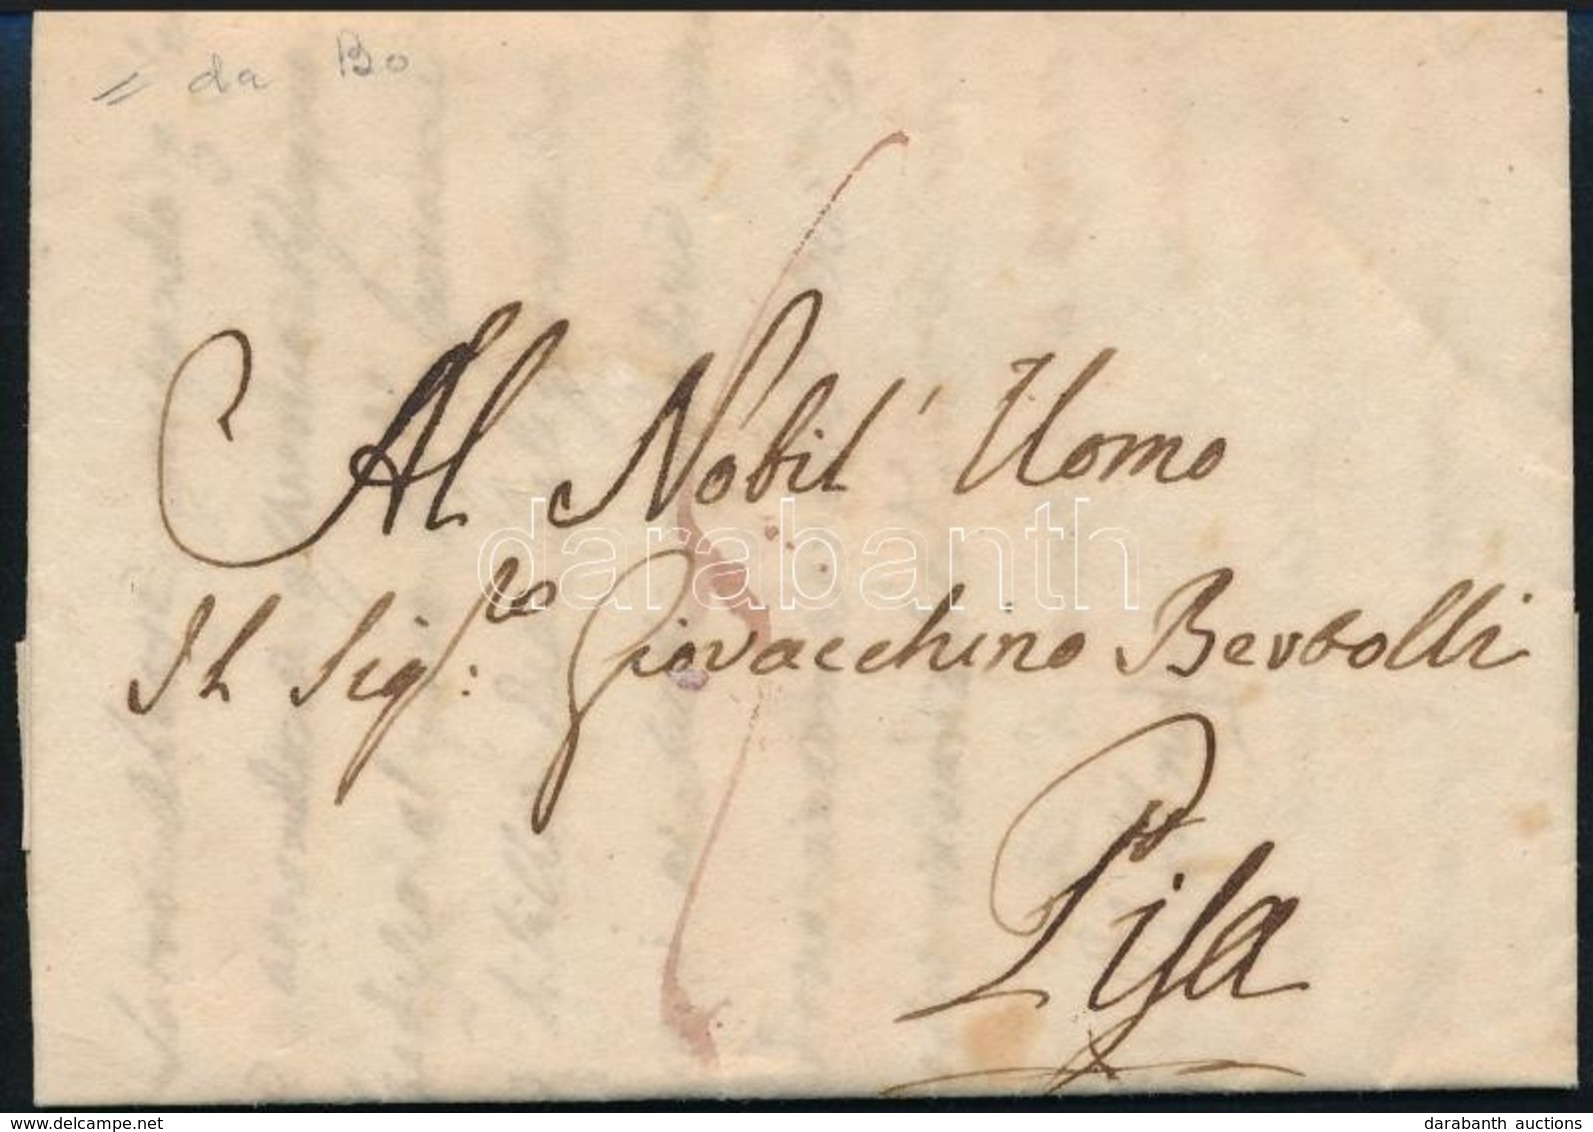 = da Bo
Al Nobil' Uomo
Il Sig:re Giovacchino Bertolli
Pisa
darabanth
www.delcampe.net
darabanth auctions